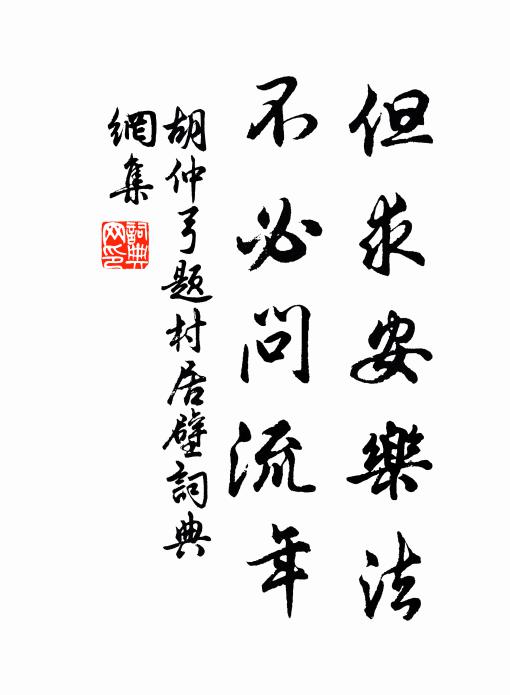 但求安樂法
不必問流年
胡仲弓題村居壁詞典
網集
詞典
网印